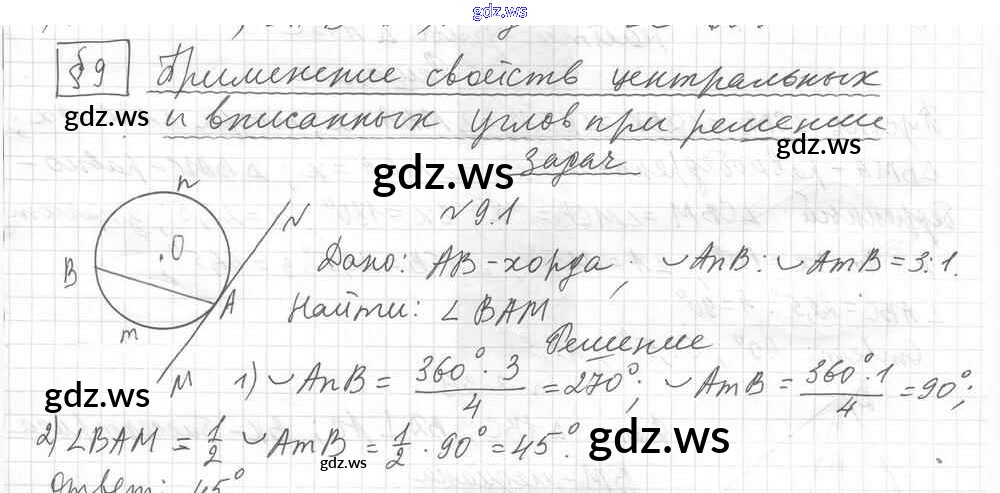 gdz.ws
§9 Применение свойств центральных
и вписанных углов при решении
задач
gdz.ws
gdz.ws
gdz.ws
n
N
O
B
A
m
M
№9.1
Дано: AB - хорда, ◡AnB : ◡AmB = 3:1.
Найти: ∠BAM
Решение
1) ◡AnB = 360°·3/4 = 270°; ◡AmB = 360°·1/4 = 90°;
2) ∠BAM = 1/2 ◡AmB = 1/2 · 90° = 45°.
Ответ: 45°
gdz.ws
gdz.ws
gdz.ws
gdz.ws